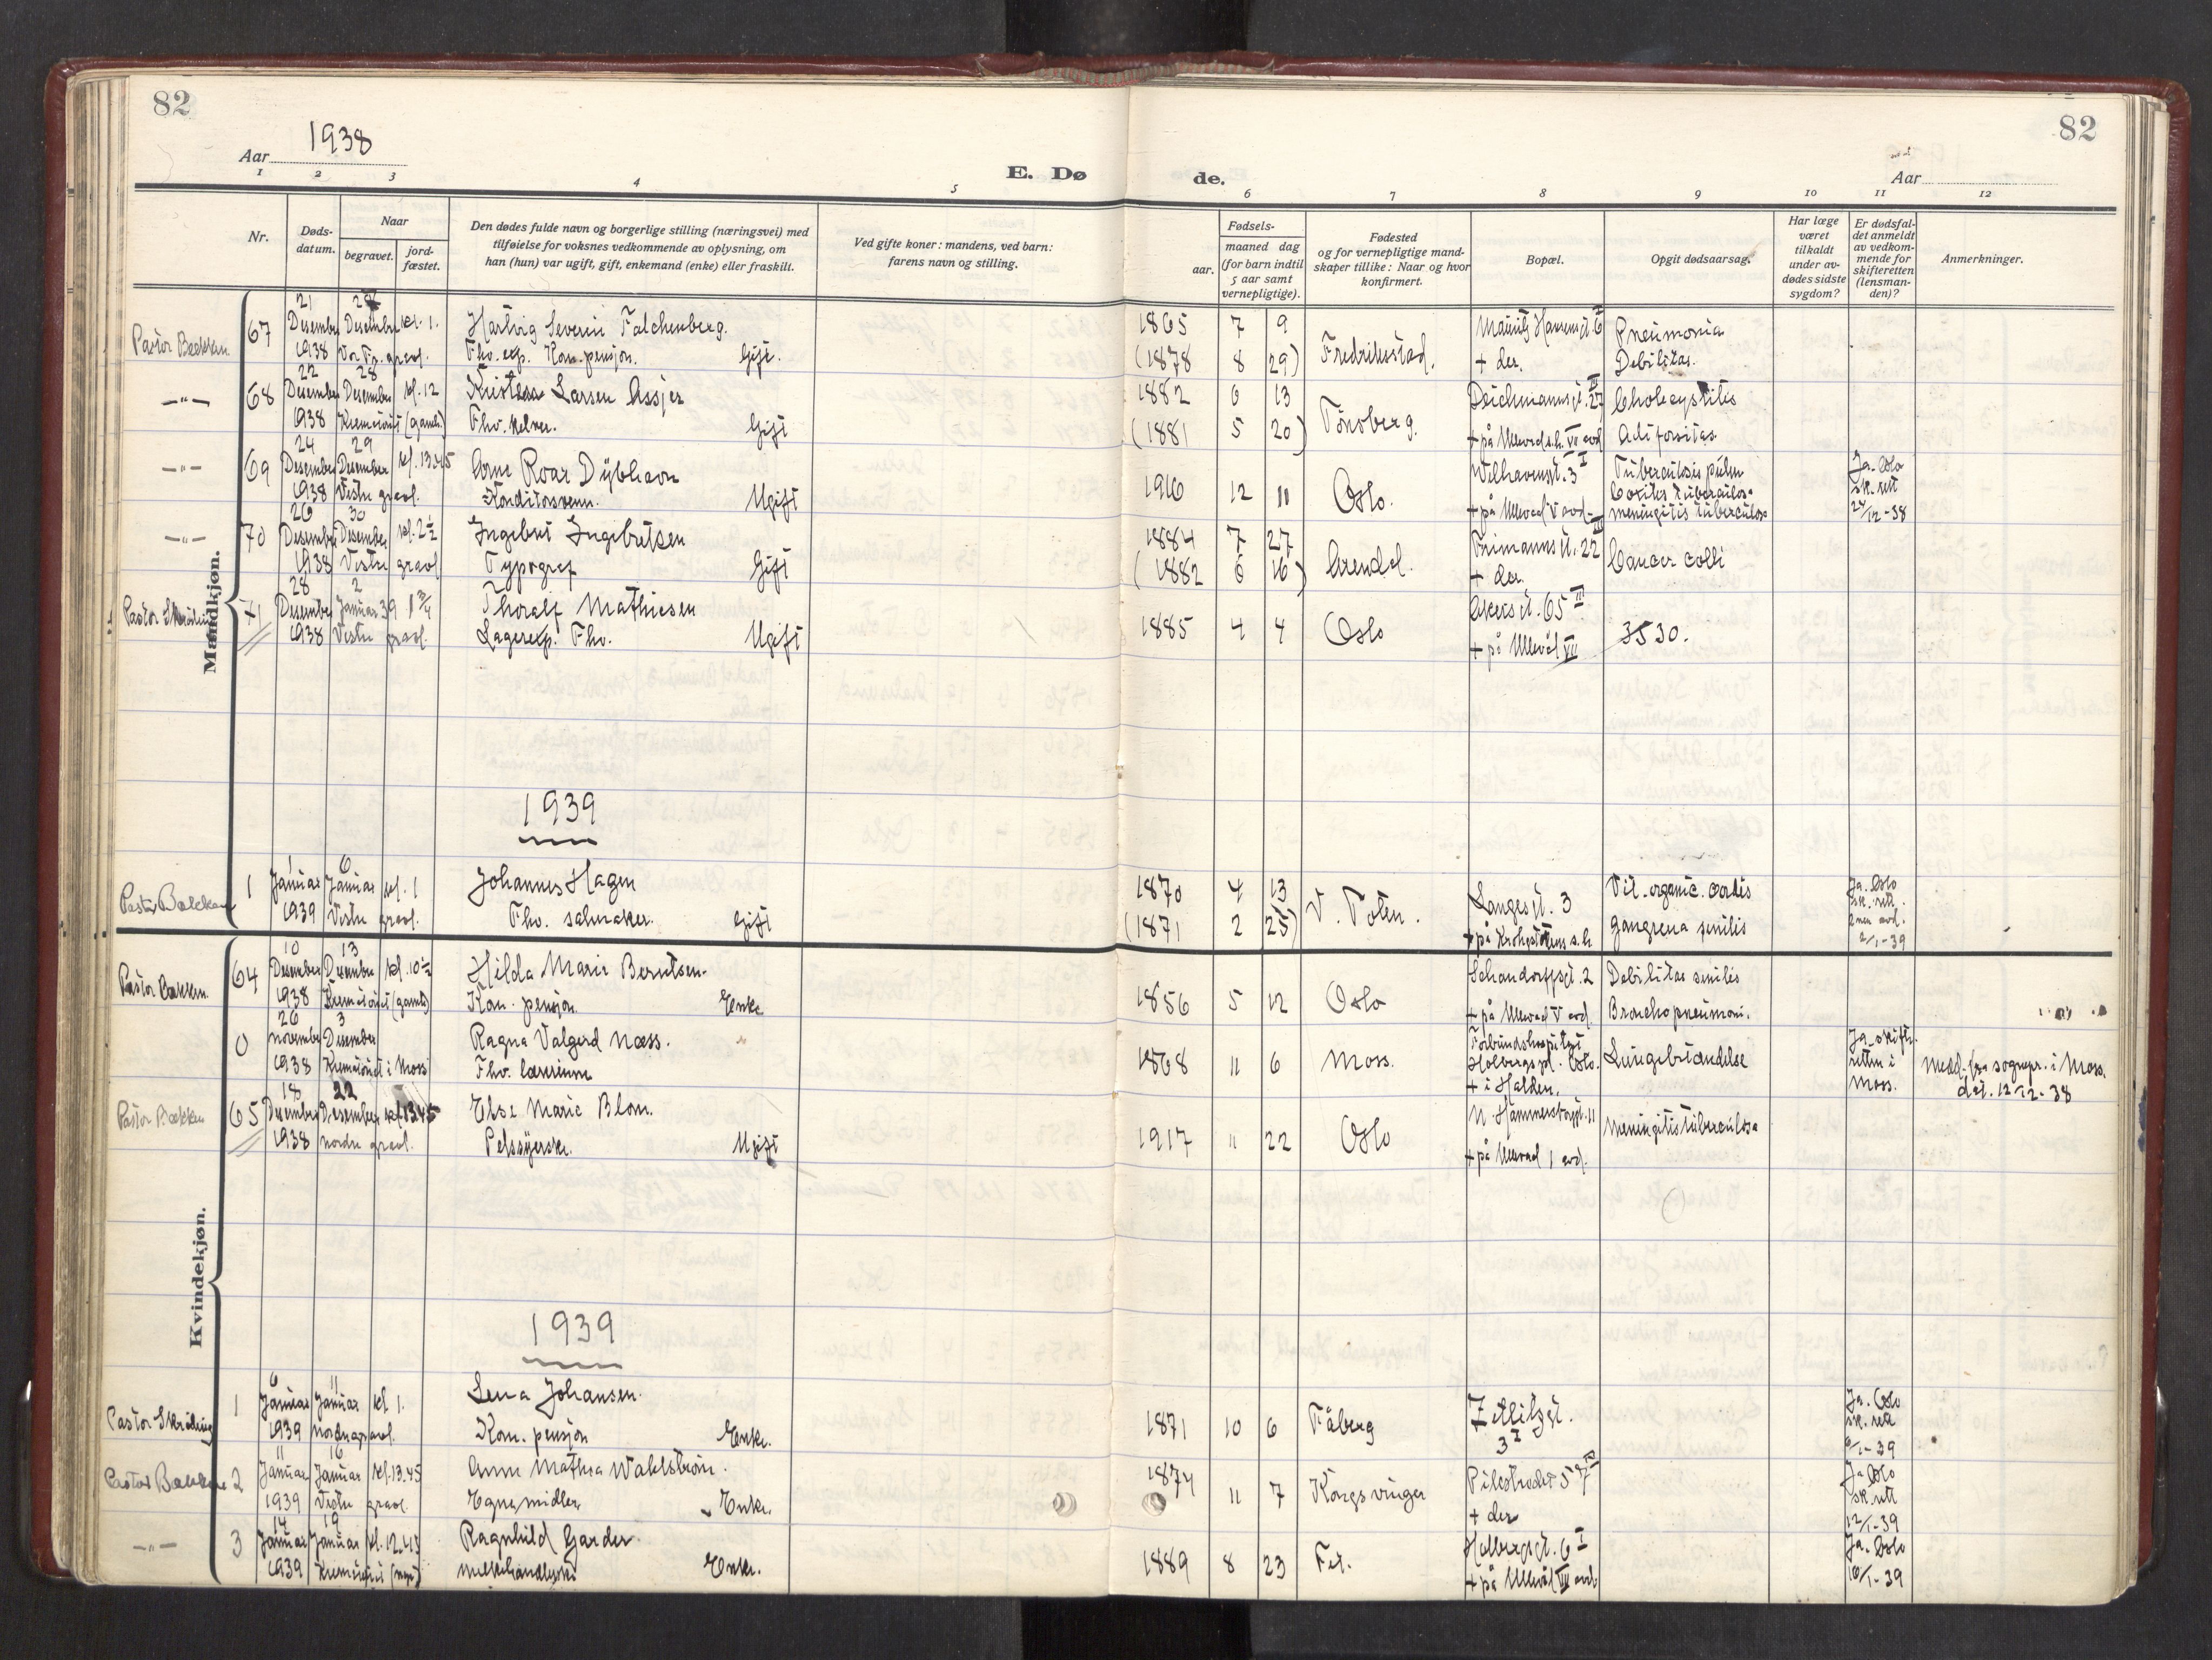 82
82
Aar 1938
E. Dø
de.
Aar
1 2 3 4 5 6 7 8 9 10 11 12
Nr.
Døds-
datum.
Naar
begravet.
jord-
fæstet.
Den dødes fulde navn og borgerlige stilling (næringsvei) med
tilføielse for voksnes vedkommende av oplysning, om
han (hun) var ugift, gift, enkemand (enke) eller fraskilt.
Ved gifte koner: mandens, ved barn:
farens navn og stilling.
Fødsels-
aar.
maaned dag
(for barn indtil
5 aar samt
vernepligtige).
Fødested
og for vernepligtige mand-
skaper tillike: Naar og hvor
konfirmert.
Bopæl.
Opgit dødsaarsag.
Har læge
været
tilkaldt
under av-
dødes sidste
sygdom?
Er dødsfal-
det anmeldt
av vedkom-
mende for
skifteretten
(lensman-
den)?
Anmerkninger.
Mandkjøn.
Pastor Bækken 67
21 Desember 1938
Desember kl. 1.
Vor Fr. gravl.
Hartvig Severin Falchenberg.
Fhv. exp. Kom. pensjon. Gift.
1865 7 9
(1878 8 29)
Fredriksstad.
+ der.
Pneumonia
Debilitas.
-"- 68
22 Desember 1938
28 Desember kl. 12
Krematoriet (gamle)
Larsen Assjer
Fhv. kelner. Gift
1882 6 13
(1881 5 20)
Tönsberg.
Deichmannsgt. 27 III
+ på Ullevål s.h. VII avd
Adipositas
-"- 69
24 Desember 1938
29 Desember kl. 13.45
Vestre gravl.
Arne Roar Dybhavn
Konditorsvenn. Ugift
1916 12 11
Oslo.
Welhavensgt. 3 I
+ på Ullevål V avd.
Tuberculosis pulm
Coxitis tuberculosa
meningitis tuberculosa
Ja. Oslo
sk. rett
24/12-38
-"- 70
26 Desember 1938
30 Desember kl. 2½
Vestre gravl
Ingebret Ingebretsen
Typograf Gift
1884 7 27
(1882 6 16)
Arendal.
Frimannsgt. 22 III
+ der.
Cancer colli
Pastor Skråding 71
28 Desember 1938
2 Januar 39 1¾
Vestre gravl.
Thoralf Mathiesen
Lagerexp. Fhv. Ugift
1885 4 4
Oslo
Akersgt. 65 III
+ på Ullevål VII
3530.
1939
Pastor Bækken 1
1 Januar 1939
6 Januar kl. 1
Vestre gravl.
Johannes Hagen
Fhv. salmaker. Gift
1870 4 13
(1871 2 25)
V. Toten.
Langesgt. 3
+ på Krohgstötens s.h.
Vit. organic. cordis
gangrena senilis
Ja. Oslo
sk. rett.
2nen avd.
2/1-39
Kvindekjøn.
Pastor Bækken 64
10 Desember 1938
13 Desember kl. 10½
Krematoriet (gamle)
Hilda Marie Berntsen.
Kom. pensjon. Enke
1856 5 12
Oslo
Schandorffsgt. 2
+ på Ullevål V avd.
Debilitas senilis
Bronchopneumoni.
0
26 november 1938
3 Desember
Krematoriet i Moss
Ragna Valgerd Næss.
Fhv. lærerinne
1868 11 6
Moss.
Forbundshospitset
Holbergspl. Oslo.
+ i Halden.
Lungebetændelse
Ja skifte-
retten i
Moss.
Medd. fra sognepr. i Moss.
dat. 12-12-38
Pastor Bækken 65
18 Desember 1938
22 Desember kl. 13.45
nordre gravl.
Else Marie Blom.
Pelssyerske. Ugift
1917 11 22
Oslo
N. Hammersborggt. 11
+ på Ullevål I avd.
Meningitis tuberculosa
1939
Pastor Skråding 1
6 Januar 1939
11 Januar kl. 1.
nordre gravl.
Lena Johansen.
Kom. pensjon Enke.
1871 10 6
Fåberg
Zetlitzgt. 3 I
Ja. Oslo
sk. rett
9/1-39
Pastor Bækken 2
11 Januar 1939
16 Januar kl. 13.45
Vestre gravl.
Anne Mathea Wahlström.
Egne midler Enke.
1874 11 7
Kongsvinger
Pilestredet 57 IV
+ der
Ja Oslo
sk. rett
12/1-39
-"- 3
14 Januar 1939
19 Januar kl. 12.45
Krematoriet (nye)
Ragnhild Garder.
melkehandlerske Enke.
1889 8 23
Fet.
Holbergsgt. 6 I
+ på Ullevål VIII avd.
Ja. Oslo
16/1-39